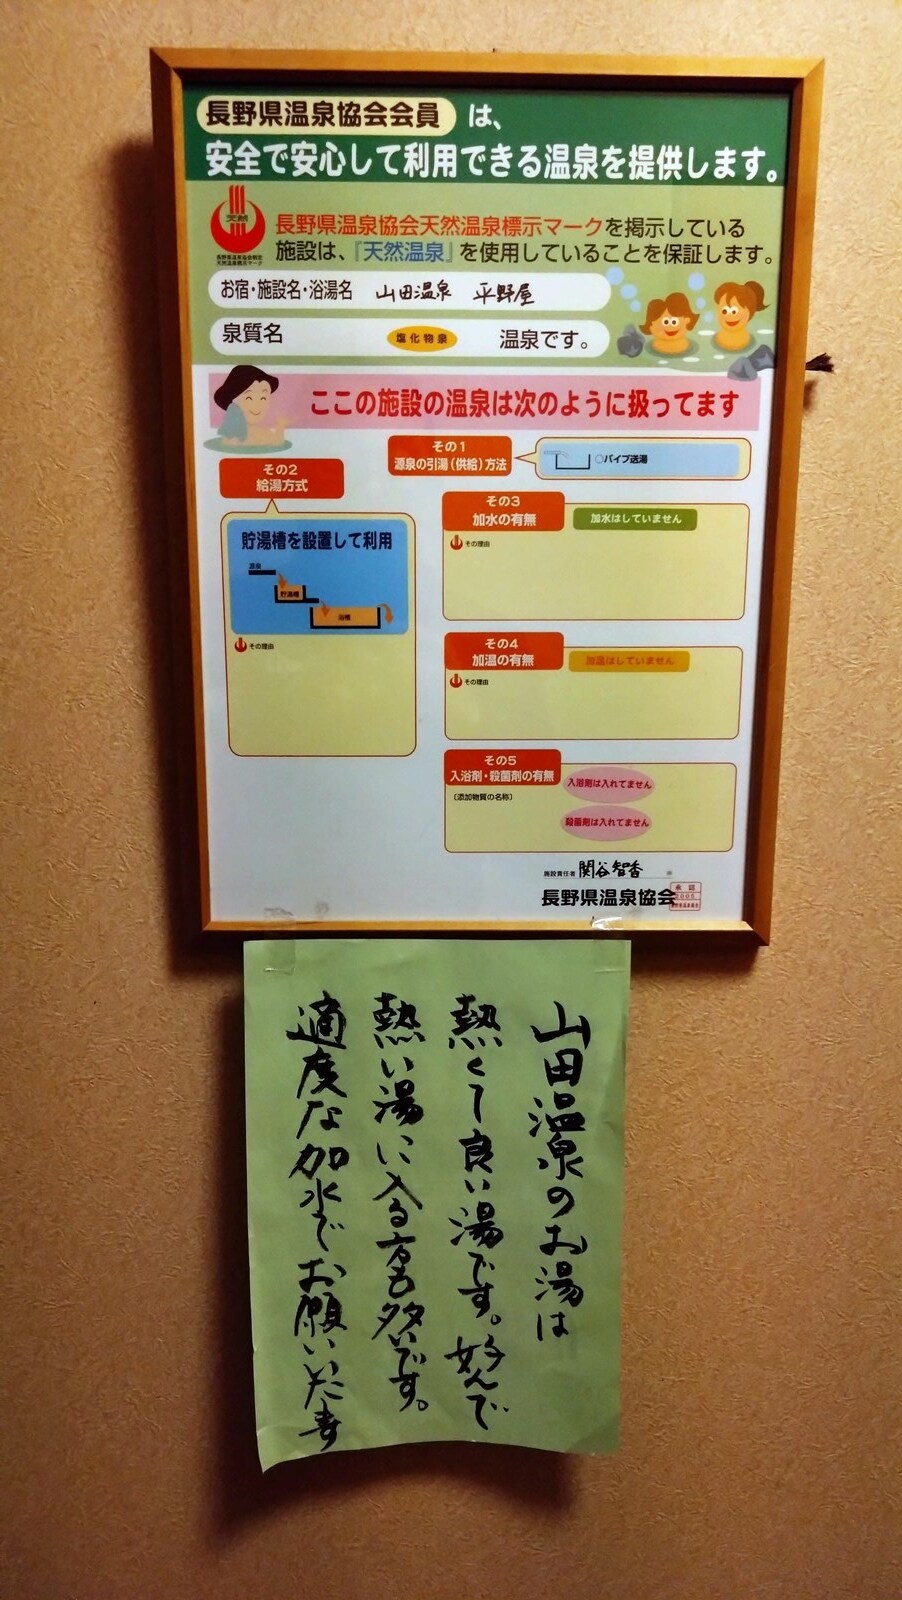 長野県温泉協会会員 は、
安全で安心して利用できる温泉を提供します。
天然
長野県温泉協会制定
天然温泉標示マーク
長野県温泉協会天然温泉標示マークを掲示している
施設は、『天然温泉』を使用していることを保証します。
お宿・施設名・浴湯名 山田温泉 平野屋
泉質名 塩化物泉 温泉です。
ここの施設の温泉は次のように扱ってます
その1
源泉の引湯(供給)方法
○パイプ送湯
その2
給湯方式
貯湯槽を設置して利用
源泉
貯湯槽
浴槽
その理由
その3
加水の有無
加水はしていません
その理由
その4
加温の有無
加温はしていません
その理由
その5
入浴剤・殺菌剤の有無
入浴剤は入れてません
〔添加物質の名称〕
殺菌剤は入れてません
施設責任者 関谷智香
長野県温泉協会
承認
2005
長野県温泉協会
山田温泉のお湯は
熱くて良い湯です。好んで
熱い湯に入る方も多いです。
適度な加水でお願いいた寿